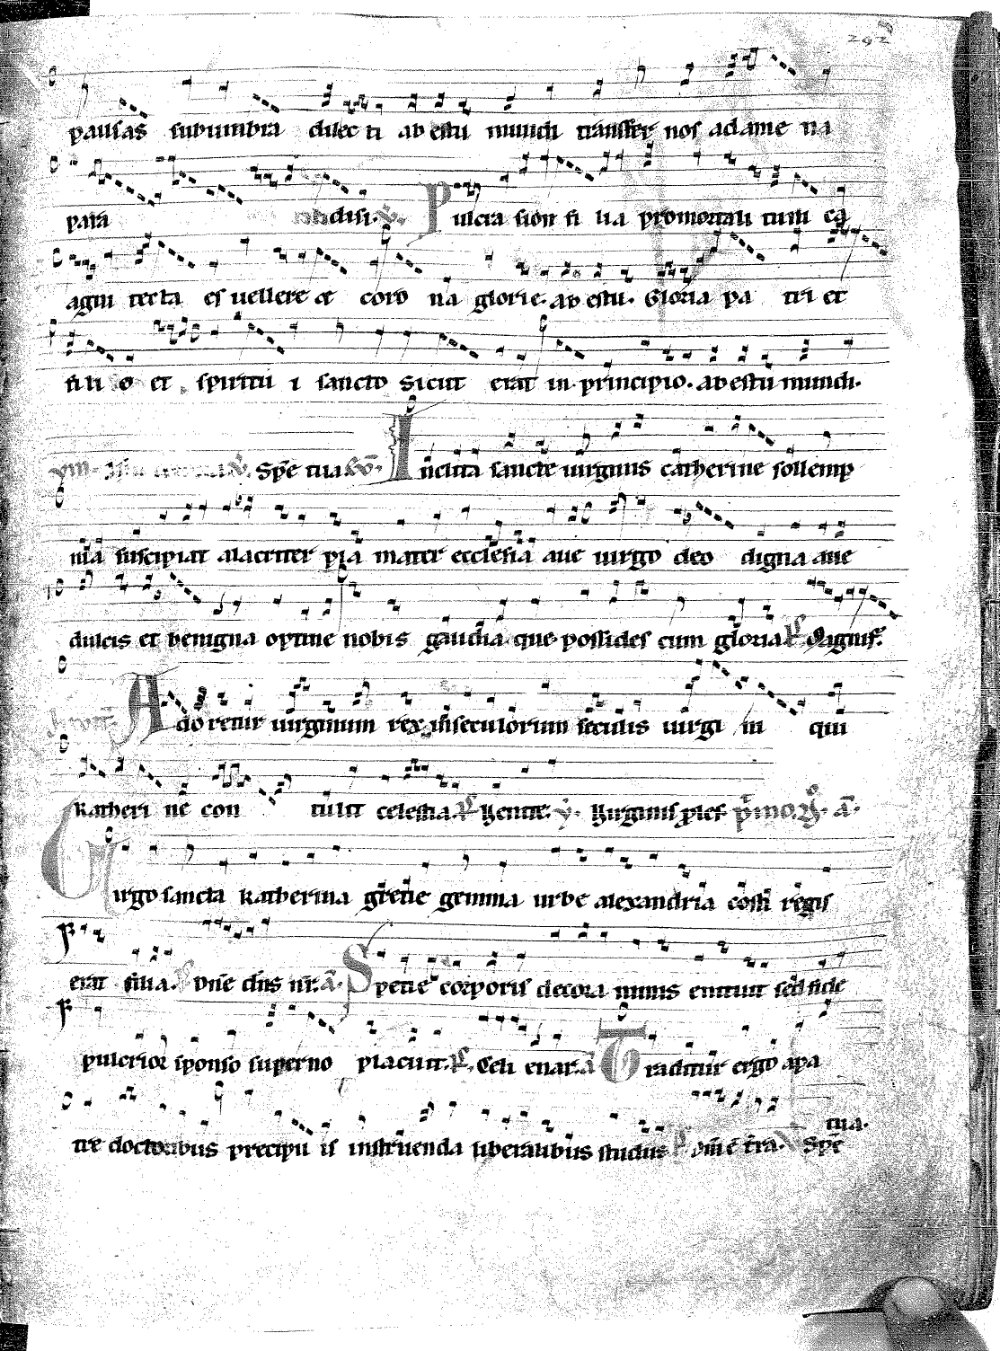 292
pausas sub umbra dilec ti ab estu mundi transfer nos ad ame na
para disi. ℣. Pulcra sion fi lia pro mortali tuni ca
agni tecta es vellere et coro na glorie. ab estu. Gloria pa tri et
fi li o et spiritu i sancto Sicut erat in principio. ab estu mundi.
Spē tua Inclita sancte virginis catherine sollemp
nia suscipiat alacriter pia mater ecclesia ave virgo deo digna ave
dulcis et benigna optine nobis gaudia que possides cum gloria Magnif.
Adoretur virginum rex in seculorum seculis virgi ni qui
katheri ne con tulit celestia. Venite. ℣. Virginis
Virgo sancta katherina grecie gemma urbe alexandria costi regis
erat filia. Dn̄e dn̄s nr̄. ā. Specie corporis decora nimis enituit sed fide
pulcrior sponso superno placuit. Celi enar. ā Traditur ergo a pa
tre doctoribus precipu is instruenda liberalibus studiis dn̄i ē t̄ra. Spē
tua.